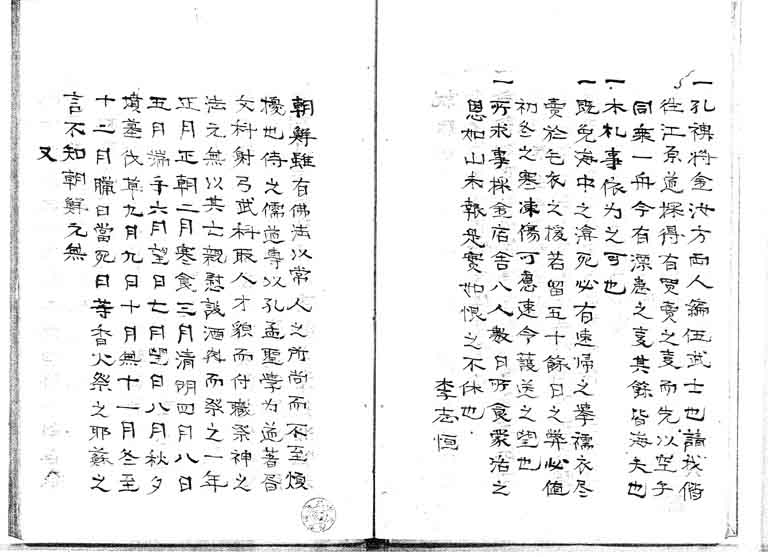 一孔裨将金汝方両人編伍武士也請我偕
徃江原道採得有買賣之㕝而先以空手
同乗一舟今有深患之㕝其餘皆海夫也
一木札事依为之可也
一既免海中之渰死必有速帰之挙襦衣尽
賣於毛衣之後若留五十餘日之弊必值
初冬之寒凍傷可慮速令護送之望也
一所求事採金宿舎八人數日所食蒙治之
恩如山未報是實如恨之不休也
李志恒
朝鮮雖有佛法以常人之所尚而不至煩
擾也侍之儒道専以孔孟聖學为道著習
文科射弓武科取人才貌而付職祭神之
法元無以其士親慰設酒而祭之一年
正月正朝二月寒食三月清明四月八日
五月端午六月望日七月望日八月秋夕
墳墓伐草九月九日十月無十一月冬至
十二月臘日當死日等香火祭之耶蘇之
言不知朝鮮元無
又